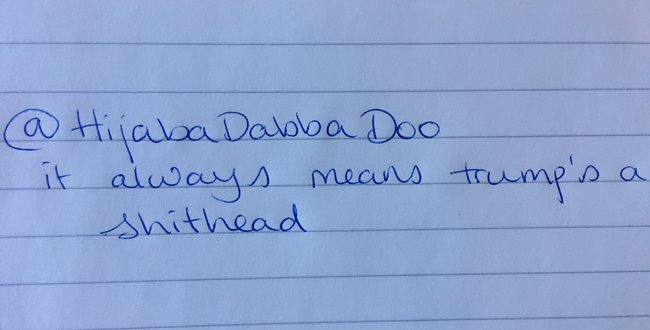 @HijabaDabbaDoo
it always means trump's a
shithead